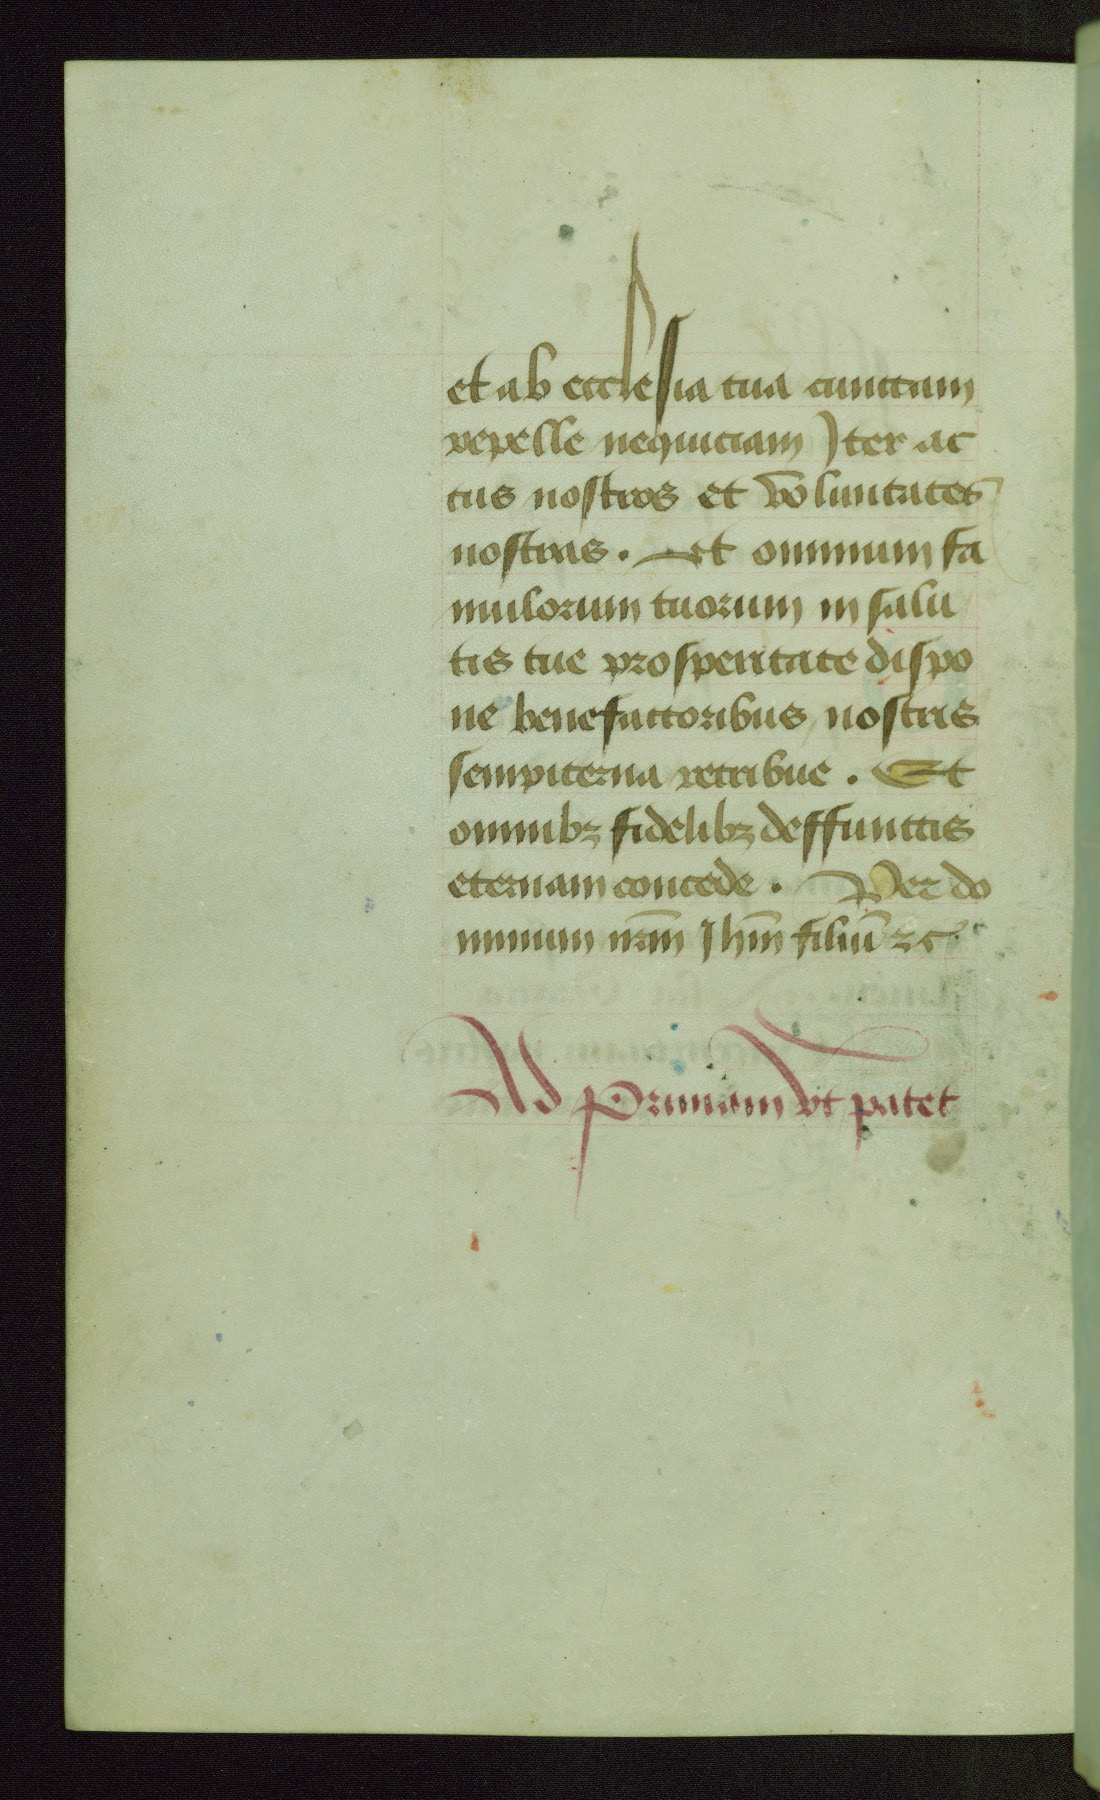 et ab ecclesia tua cunctam
repelle nequiciam Iter ac
tus nostros et vo̅luntates
nostras . et omnium fa
mulorum tuorum in salu
tis tue prosperitate dispo
ne benefactoribus nostris
sempiterna retribue . Et
omnibꝫ fidelibꝫ deffunctis
eternam concede . Per do
minum nr̅m Ihm̅ filiu̅ ⁊c
Ad Primam vt patet